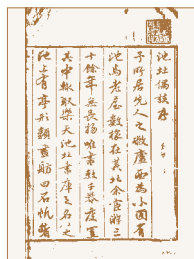 池北偶談序
予所居先人之敝廬西為小圃有
池焉老屋數椽在其北余宦游三
十餘年無長物唯書數千卷庋置
其中輒取樂天池北書庫之名名之
池上有亭形類畫舫曰石帆者